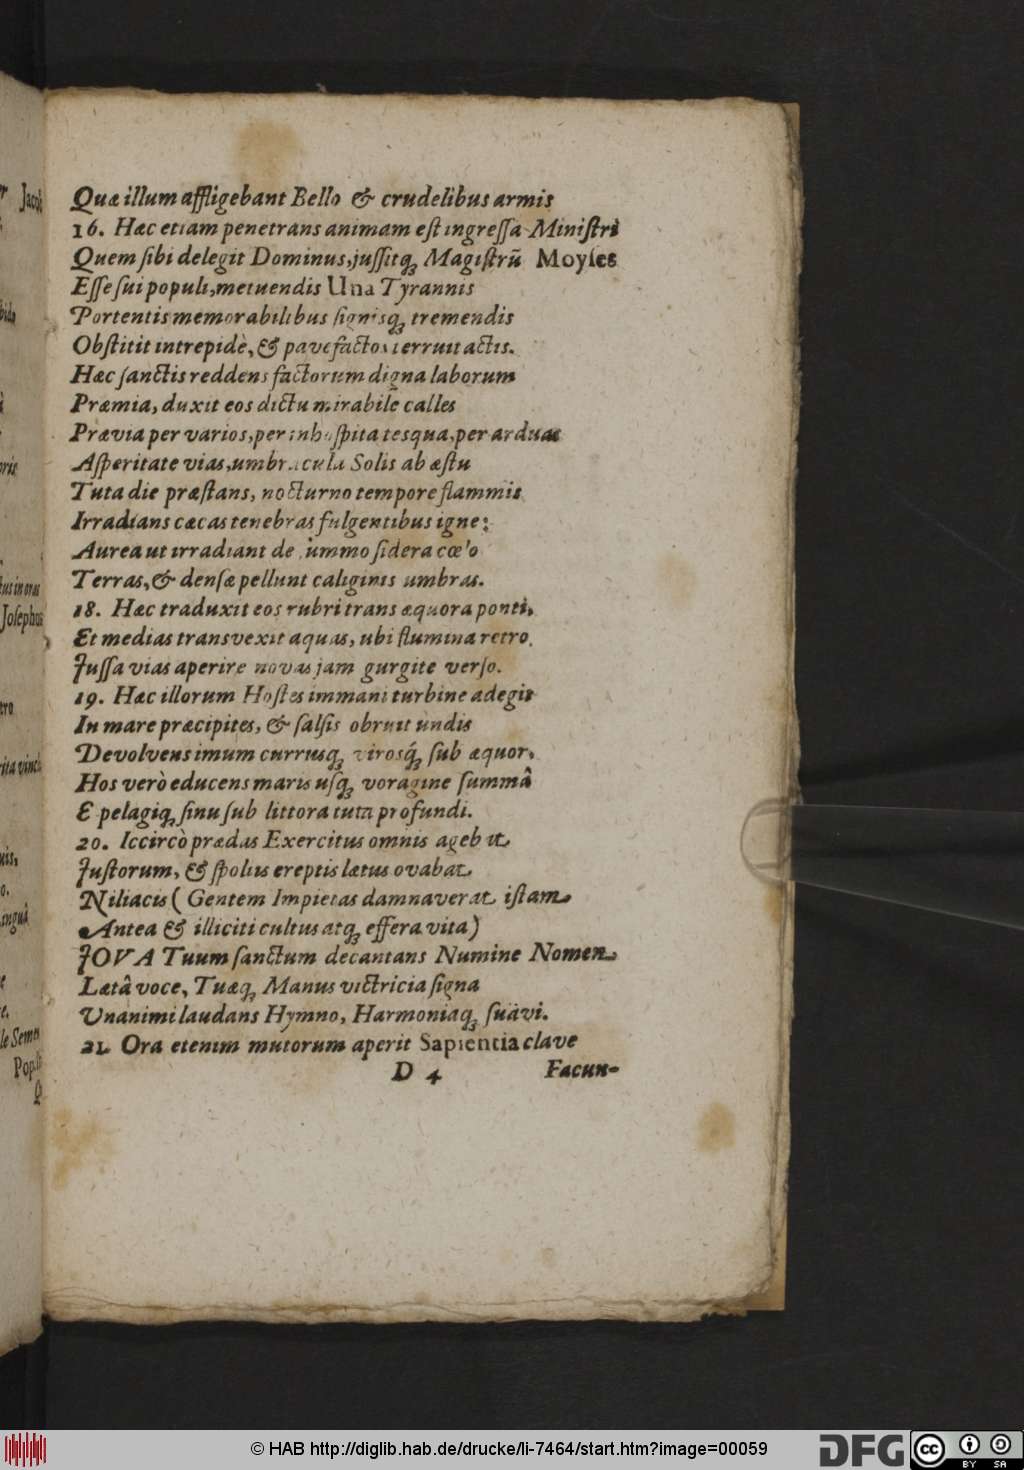 Quæ illum affligebant Bello & crudelibus armis
16. Hæc etiam penetrans animam est ingressa Ministri
Quem sibi delegit Dominus, jussitq; Magistrũ Moyses
Esse sui populi, metuendis Una Tyrannis
Portentis memorabilibus signisq; tremendis
Obstitit intrepidè, & pavefactos terruit actis.
Hæc sanctis reddens factorum digna laborum
Præmia, duxit eos dictu mirabile calles
Prævia per varios, per inhospita tesqua, per arduas
Asperitate vias, umbracula Solis ab æstu
Tuta die præstans, nocturno tempore flammis
Irradians cæcas tenebras fulgentibus igne:
Aurea ut irradiant de summo sidera cœlo
Terras, & densæ pellunt caliginis umbras.
18. Hæc traduxit eos rubri trans æquora ponti,
Et medias transvexit aquas, ubi flumina retro
Jussa vias aperire novas jam gurgite verso.
19. Hæc illorum Hostes immani turbine adegit
In mare præcipites, & salsis obruit undis
Devolvens imum currusq; virosq́; sub æquor,
Hos verò educens maris usq; voragine summâ
E pelagiq; sinu sub littora tuta profundi.
20. Iccircò prædas Exercitus omnis agebat
Justorum, & spoliis ereptis lætus ovabat
Niliacis (Gentem Impietas damnaverat istam
Antea & illiciti cultus atq; effera vita)
JOVA Tuum sanctum decantans Numine Nomen
Lætâ voce, Tuæq; Manus victricia signa
Unanimi laudans Hymno, Harmoniaq; suavi.
21. Ora etenim mutorum aperit Sapientia clave
D 4 Facun-
© HAB http://diglib.hab.de/drucke/li-7464/start.htm?image=00059
DFG
cc BY SA